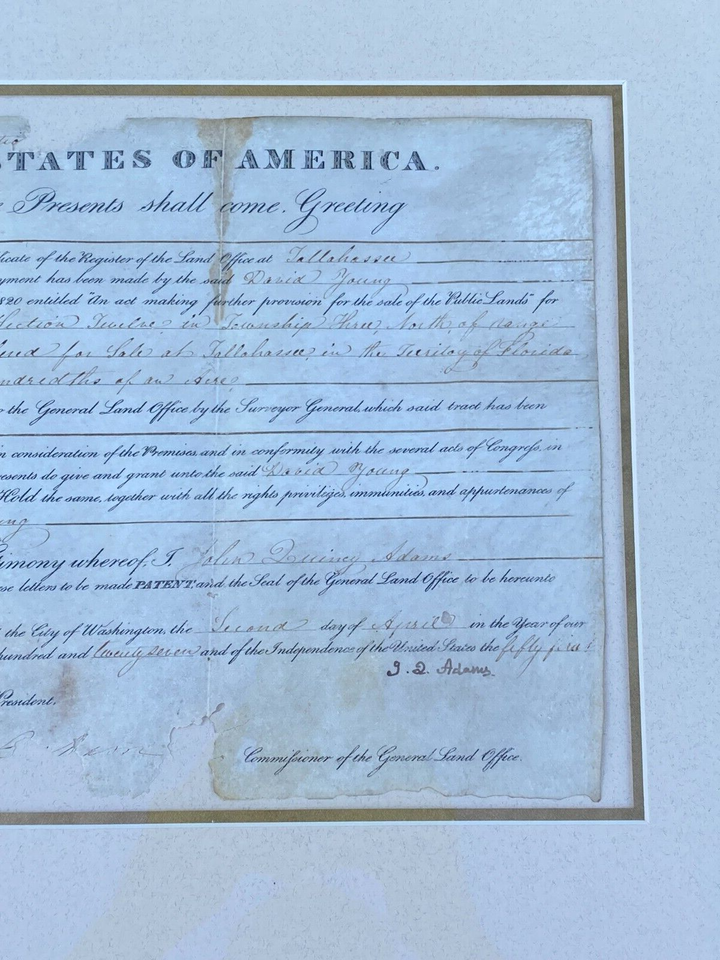 STATES OF AMERICA.
Presents shall come, Greeting
icate of the Register of the Land Office at Tallahassee
yment has been made by the said David Young
1820 entitled "An act making further provision for the sale of the Public Lands" for
Section Twelve, in Township Three, North, of range
ered for Sale at Tallahassee, in the Territory of Florida
undredths of an Acre,
o the General Land Office by the Surveyor General, which said tract has been
in consideration of the Premises and in conformity with the several acts of Congress, in
esents do give and grant unto the said David Young
Hold the same, together with all the rights, privileges, immunities, and appurtenances of
ung
timony whereof, I, John Quincy Adams
ese letters to be made PATENT, and the Seal of the General Land Office to be hereunto
t the City of Washington, the Second day of April in the Year of our
hundred and twenty seven and of the Independence of the United States the fifty first
J. Q. Adams.
President,
Commissioner of the General Land Office.